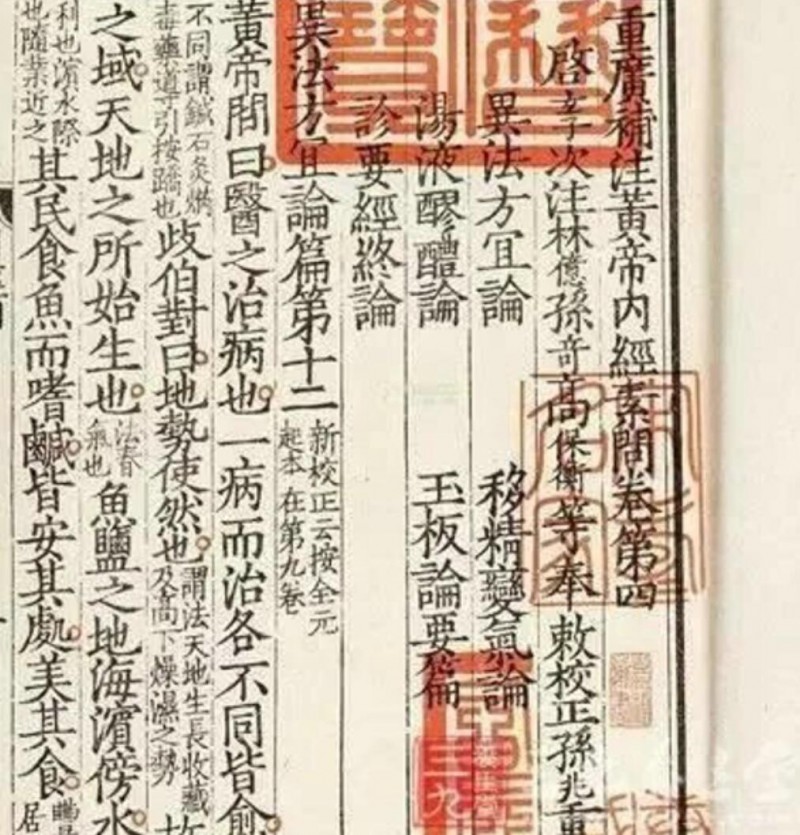 重廣補注黃帝内經素問卷第四
啓玄子次注林億孫奇高保衡等奉敕校正孫兆重
異法方宜論 移精變氣論
湯液醪醴論 玉板論要
診要經終論
異法方宜論篇第十二 新校正云按全元起本在第九卷
黃帝問曰醫之治病也一病而治各不同皆愈
不同謂鍼石灸焫毒藥導引按蹻也 歧伯對曰地勢使然也 謂法天地生長收藏及高下燥濕之勢 故
之域天地之所始生也 法春氣也 魚鹽之地海濱傍水
利也濱水際也隨業近之 其民食魚而嗜鹹皆安其處美其食 居